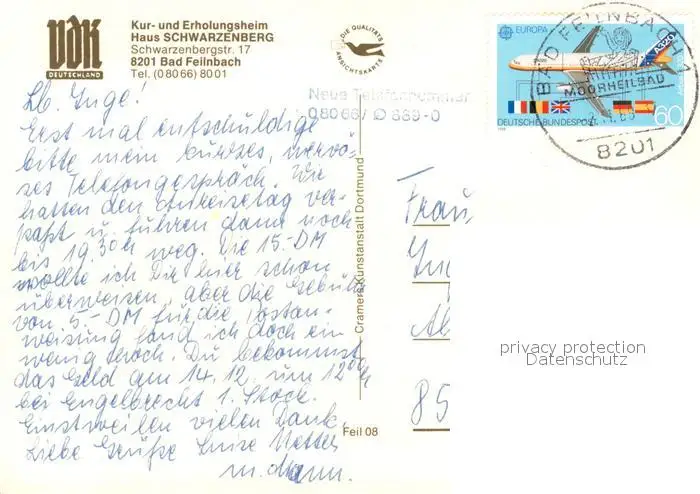 VDK
DEUTSCHLAND
Kur- und Erholungsheim
Haus SCHWARZENBERG
Schwarzenbergstr. 17
8201 Bad Feilnbach
Tel. (0 80 66) 80 01
DIE QUALITÄTS
ANSICHTSKARTE
Neue Telefonnummer
08066/ 889-0
EUROPA
A320
60
DEUTSCHE BUNDESPOST
BAD FEILNBACH 1
MOORHEILBAD
8201
Lb. Inge!
Erst mal entschuldige
bitte mein kurzes, nervö-
ses Telefongespräch. Wir
hatten den Anreisetag ver-
paßt u. fuhren dann noch
bis 19.30h weg. Die 15.-DM
wollte ich Dir hier schon
überweisen, aber die Gebühr
von 5.-DM für die Postan-
weisung fand ich doch ein
wenig hoch. Du bekommst
das Geld am 14.12. um 12ooh
bei Engelbrecht 1. Stock.
Einstweilen vielen Dank,
Liebe Grüße Luise
u.
Cramers Kunstanstalt Dortmund
Feil 08
Frau
85
privacy protection
Datenschutz